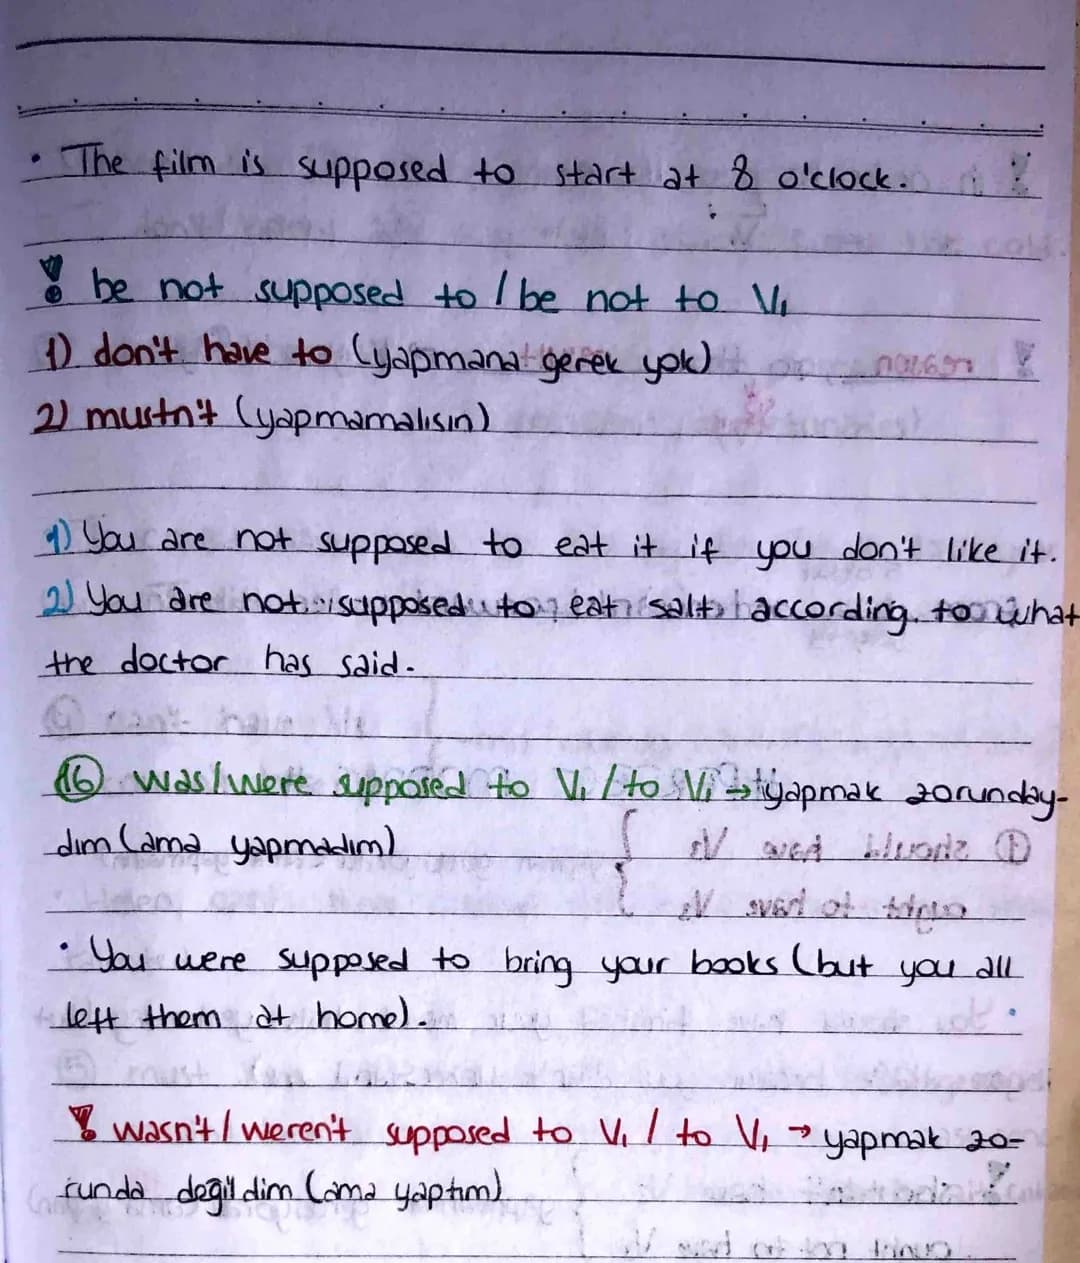 • The film is supposed to start at 8 o'clock.
! be not supposed to / be not to V₁
1) don't have to (yapmana gerek yok)
2) mustn't (yapmamalısın)
1) You are not supposed to eat it if you don't like it.
2) You are not supposed to eat salt according to what
the doctor has said.
16 was/were supposed to V₁ / to V₁ → yapmak zorunday-
dım (ama yapmadım)
• You were supposed to bring your books (but you all
left them at home).
! wasn't / weren't supposed to V₁ / to V₁ → yapmak zo-
runda değildim (ama yaptım)